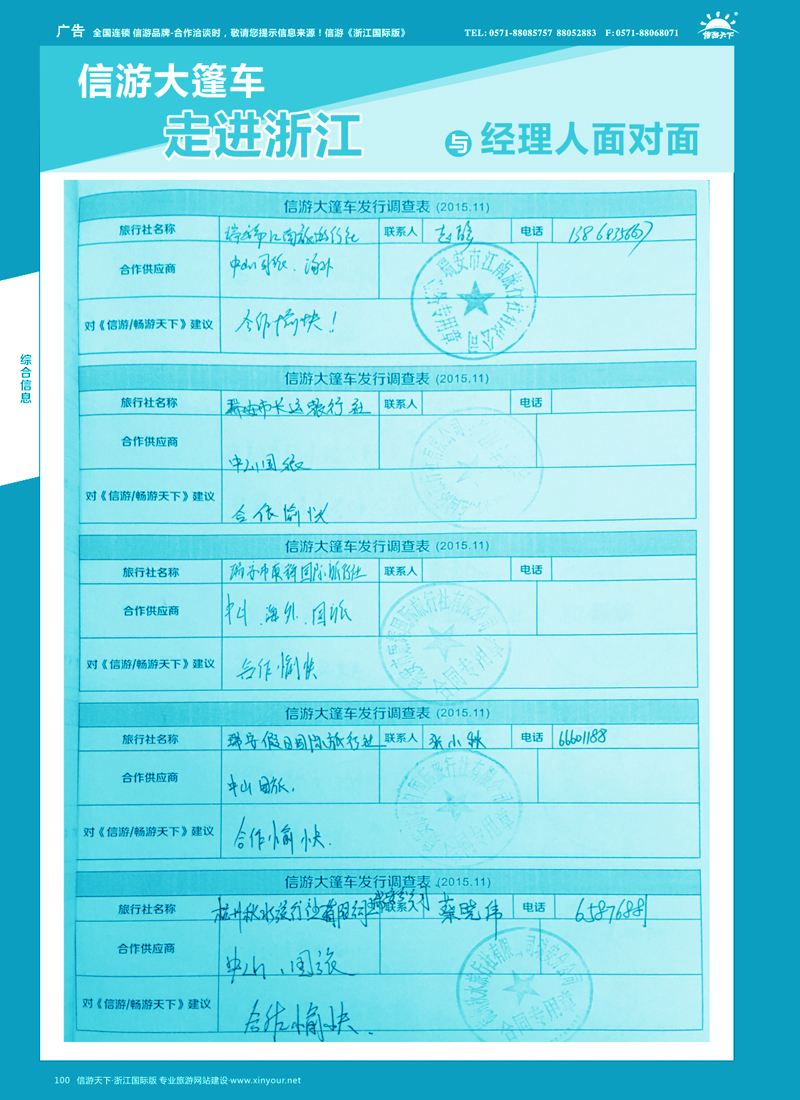 广告 全国连锁 信游品牌-合作洽谈时，敬请您提示信息来源！信游《浙江国际版》 TEL: 0571-88085757 88052883 F: 0571-88068071
信游天下
信游大篷车
走进浙江
与 经理人面对面
综合信息
信游大篷车发行调查表 (2015.11)
旅行社名称 瑞安市江南旅游行社 联系人 电话
合作供应商 中山国旅、海外
瑞安市江南旅行社有限公司
对《信游/畅游天下》建议 合作愉快！
信游大篷车发行调查表 (2015.11)
旅行社名称 瑞安市长运旅行社 联系人 电话
合作供应商 中山国旅
对《信游/畅游天下》建议 合作愉快
信游大篷车发行调查表 (2015.11)
旅行社名称 联系人 电话
合作供应商 中山、海外、国旅
合同专用章
对《信游/畅游天下》建议 合作愉快
信游大篷车发行调查表 (2015.11)
旅行社名称 瑞安假日国际旅行社 联系人 电话 66601188
合作供应商 中山国旅.
对《信游/畅游天下》建议 合作愉快.
信游大篷车发行调查表 (2015.11)
旅行社名称 杭州秋水旅行社有限公司瑞安分公司 联系人 蔡晓伟 电话 65876881
合作供应商 中山、国旅
合同专用章
对《信游/畅游天下》建议 合作愉快.
100 信游天下·浙江国际版 专业旅游网站建设·www.xinyour.net